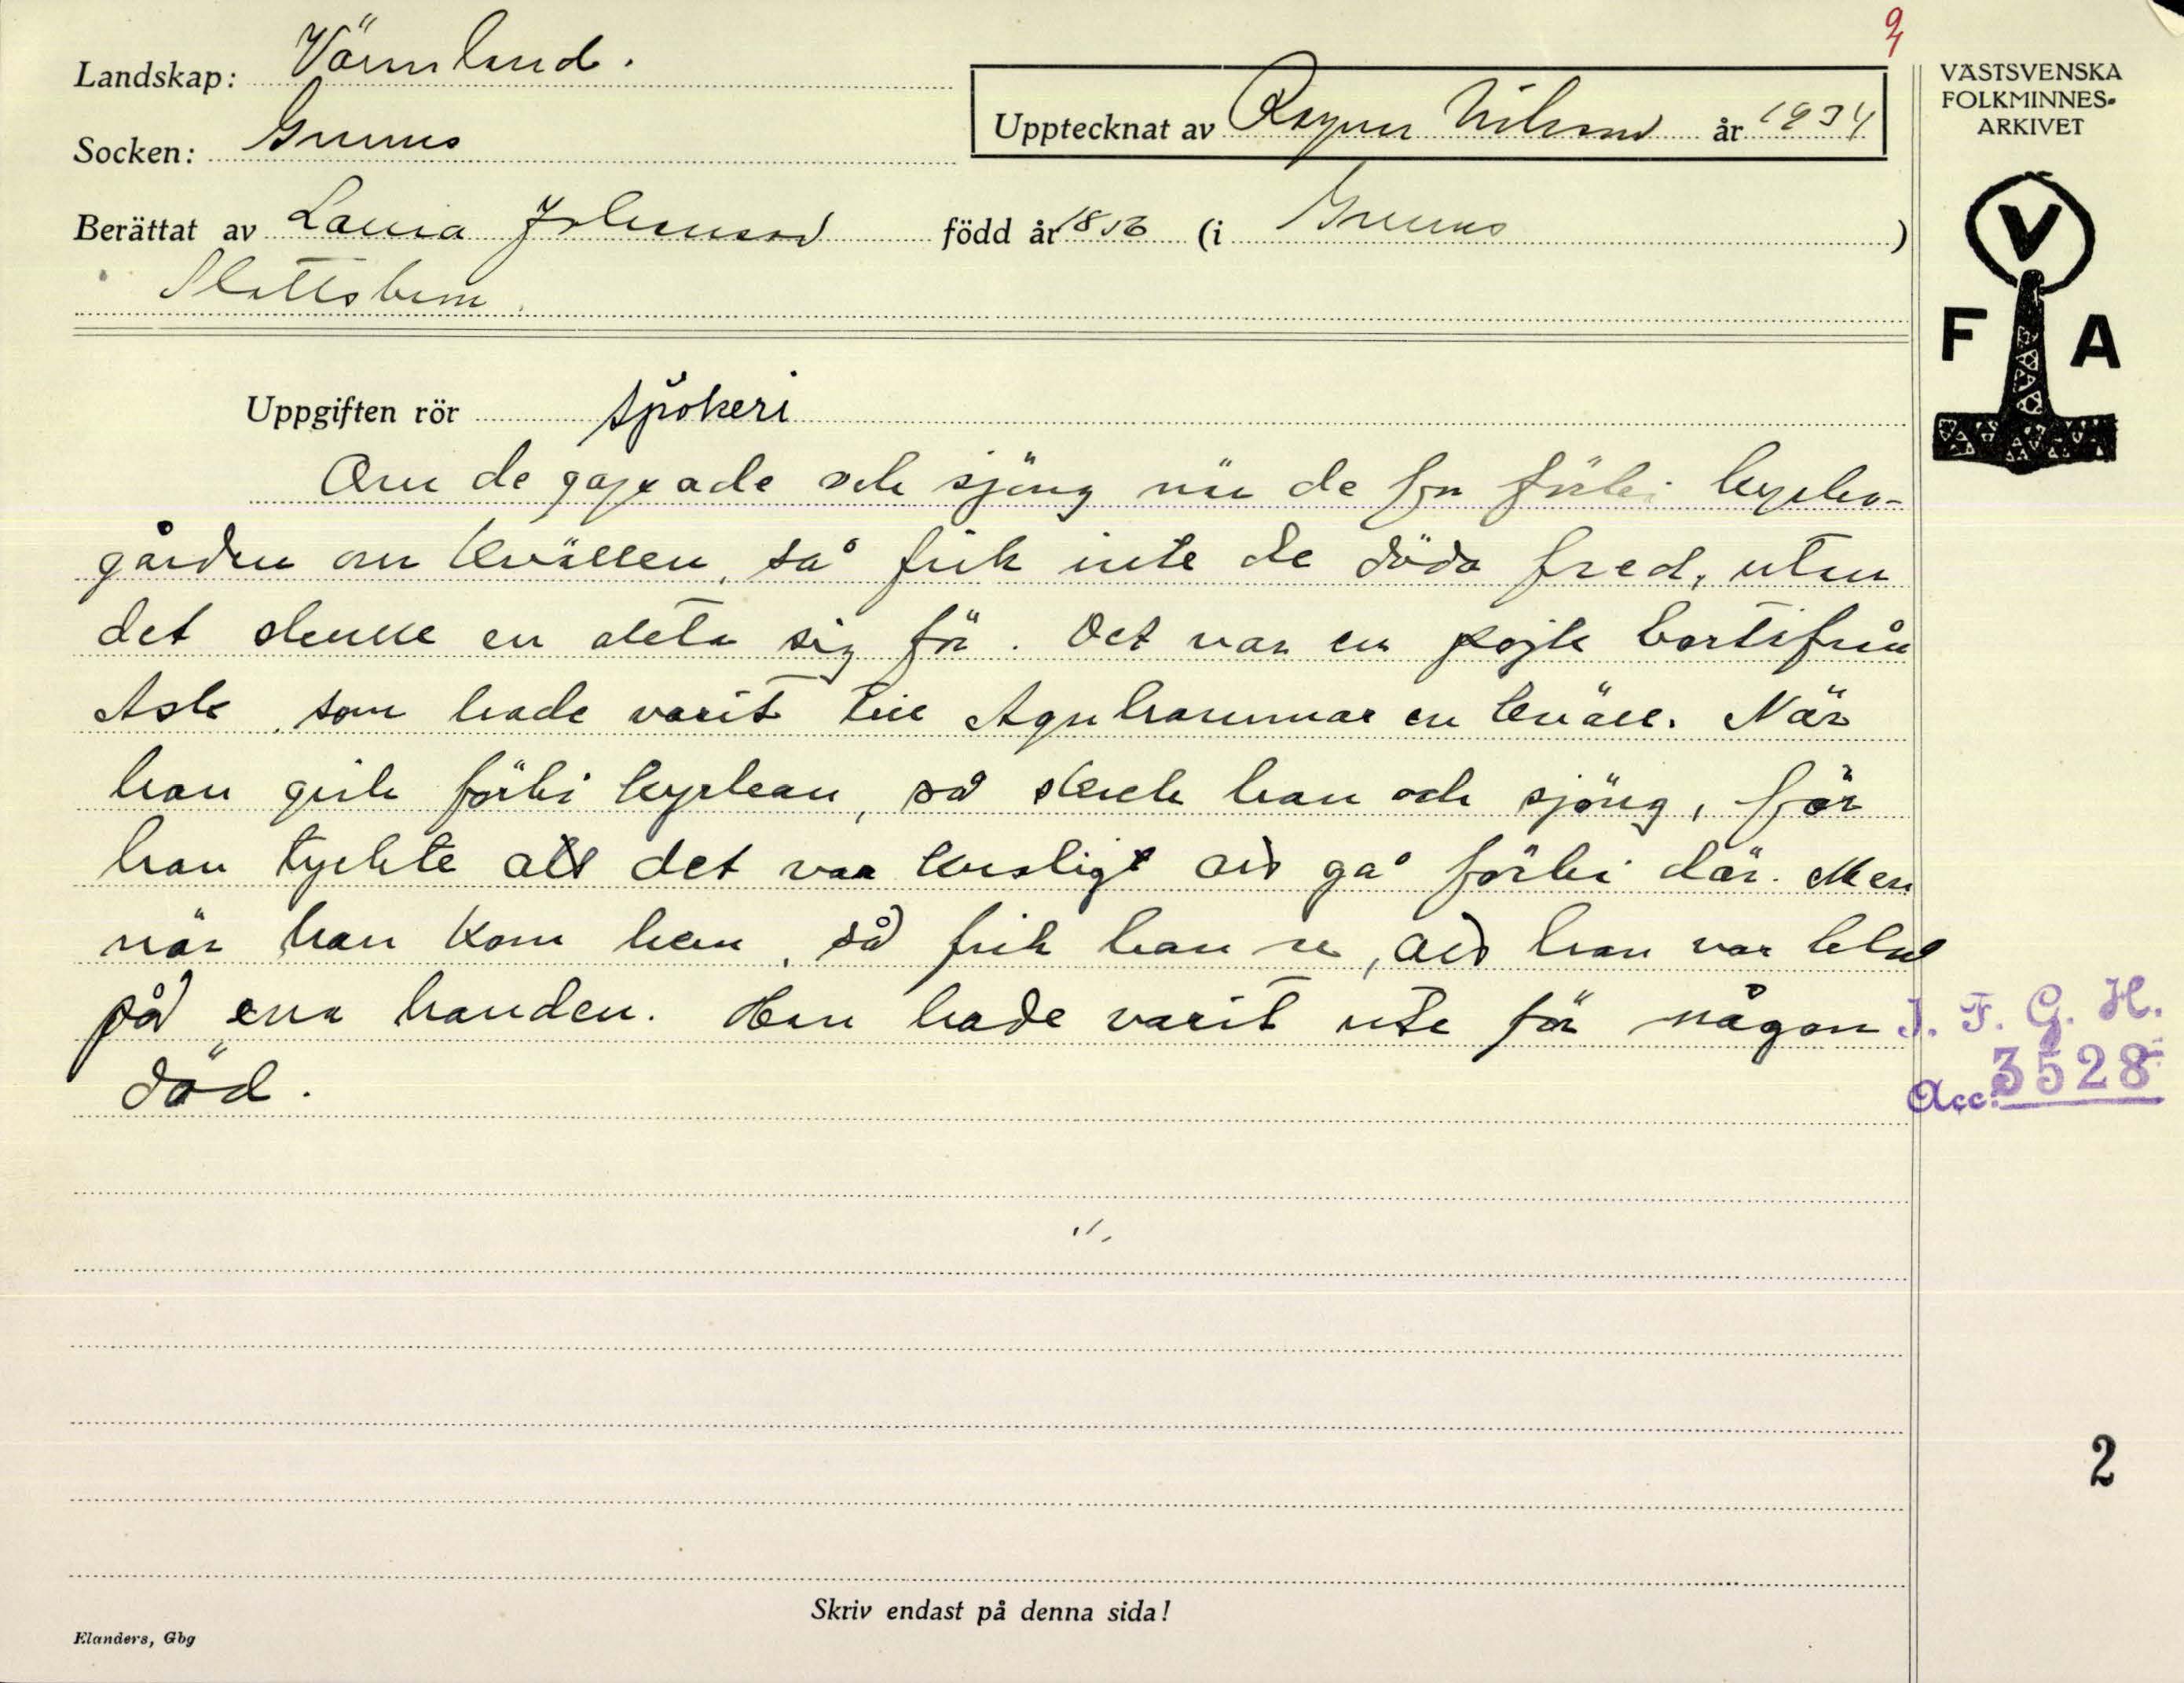 9
Landskap: Värmland.
Socken: Grums
Upptecknat av Ragnar Nilsson år 1934
VÄSTSVENSKA
FOLKMINNES-
ARKIVET
Berättat av Johansson född år (i Grums)
Slottsbron
V
F A
Uppgiften rör spökeri
Om de gapade och sjöng när de for förbi kyrko-
gården om kvällen, så fick inte de döda fred, utan
det skulle en akta sig för. Det var en pojk bortifrån
Ask, som hade varit till Agnhammar en kväll. När
han gick förbi kyrkan, så skrek han och sjöng, för
han tyckte att det var kusligt att gå förbi där. Men
när han kom hem, så fick han se, att han var blå
på ena handen. Han hade varit ute för någon
död.
I. F. G. H.
Acc. 3528
2
Skriv endast på denna sida!
Elanders, Gbg